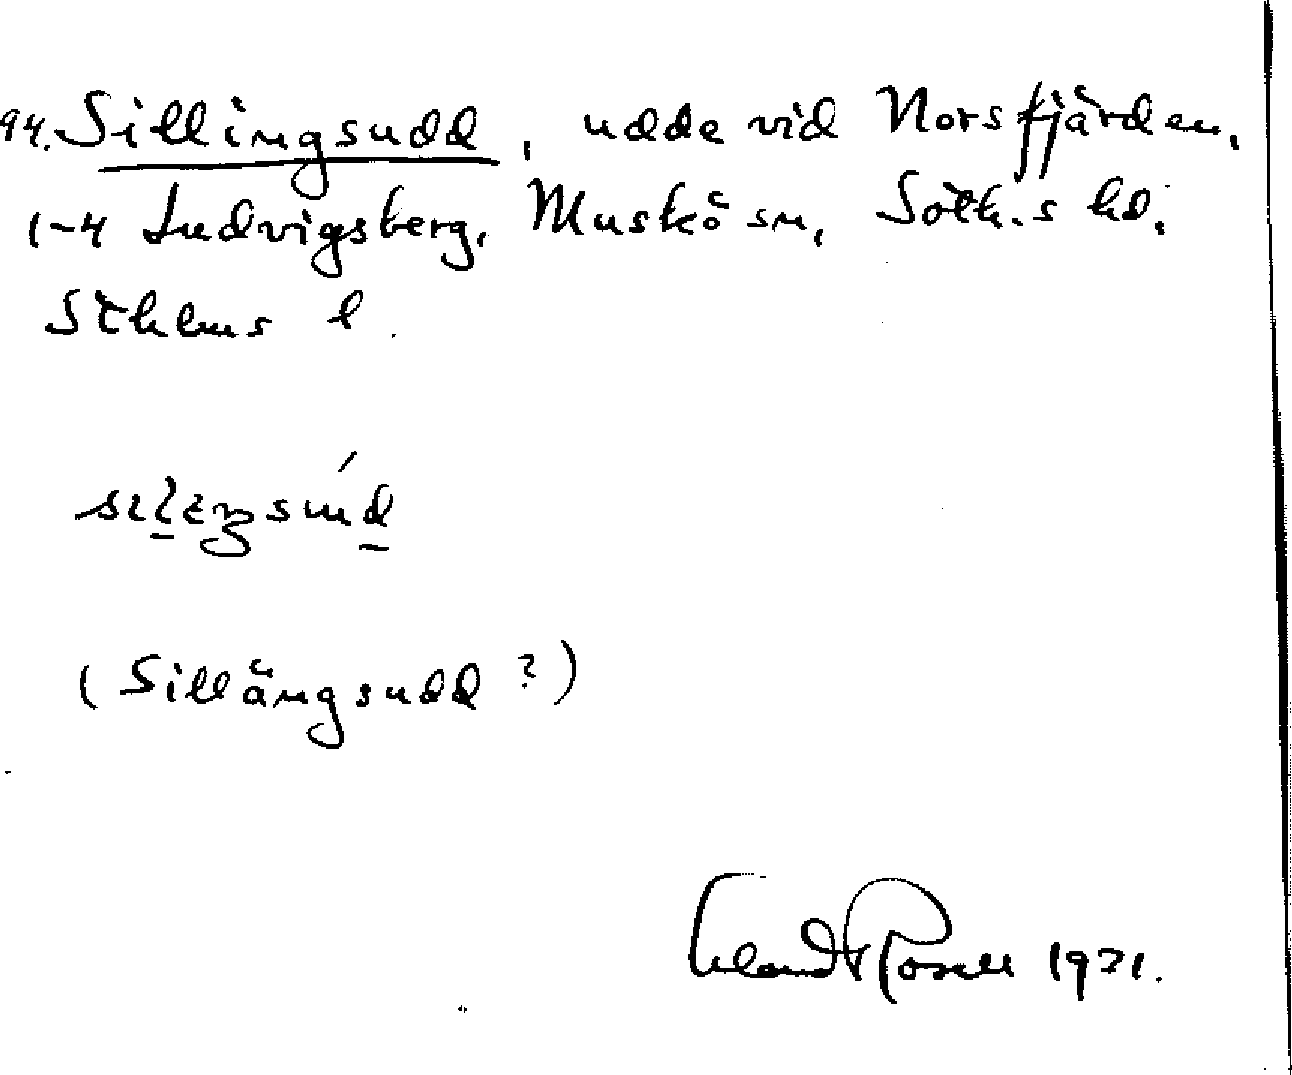 94. Sillingsudd, udde vid Norsfjärden,
1-4 Ludvigsberg, Muskö sn, Soth.s hd.
Sthlms l.
(Sillängsudd?)
Erland Rosell 1971.